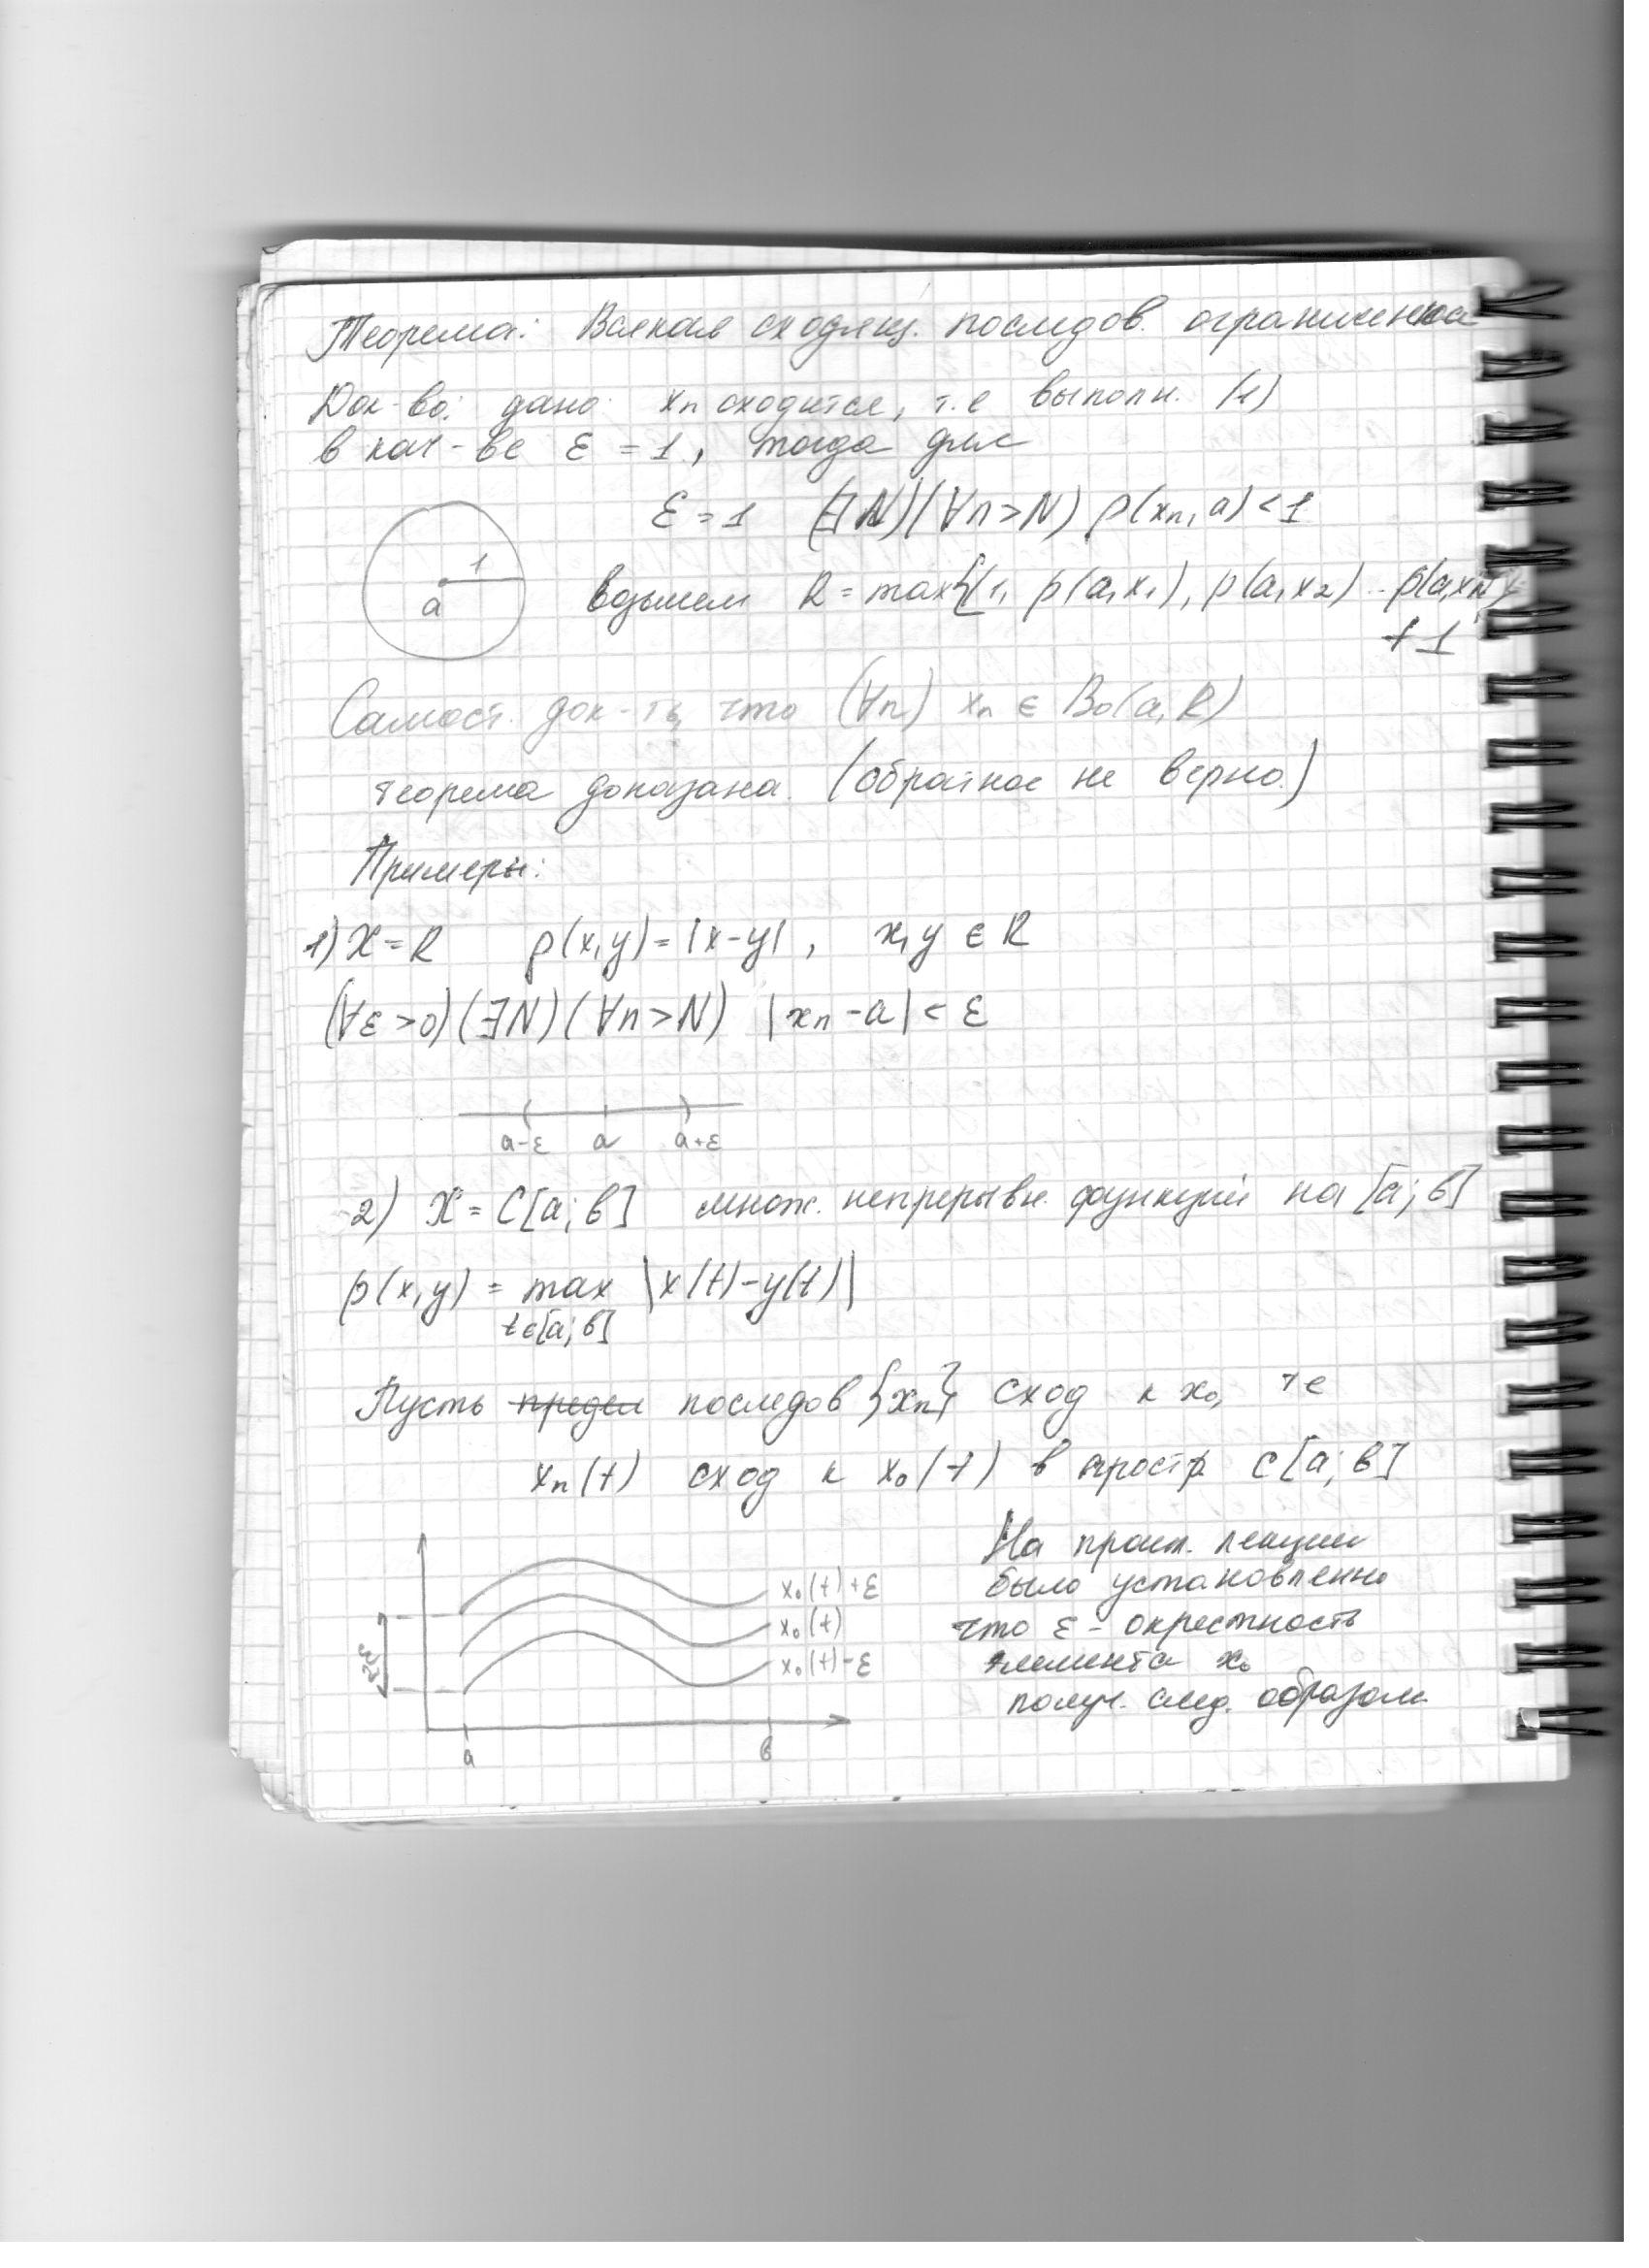 Теорема: Всякая сходящ. последов. ограниченна
Док-во: дано: xₙ сходится, т.е выполн. (1)
в кач-ве ε = 1, тогда для
ε = 1 (∃N)(∀n>N) ρ(xₙ, a) < 1
1
a
возьмем R = max{(1, ρ(a,x₁), ρ(a,x₂) .. ρ(a,x_N)}
+1
Самост. док-ть, что (∀n) xₙ ∈ B₀(a, R)
теорема доказана. (обратное не верно.)
Примеры:
1) X = R ρ(x,y) = |x-y|, x,y ∈ R
(∀ε>0)(∃N)(∀n>N) |xₙ - a| < ε
a-ε a a+ε
2) X = C[a; в] множ. непрерывн. функций на [a; в]
ρ(x,y) = max |x(t)-y(t)|
t∈[a; в]
Пусть предел последов {xₙ} сход к x₀, те
xₙ(t) сход к x₀(t) в простр C[a; в]
На прошл. лекции
было установленно
что ε - окрестность
элемента x₀
получ. след. образом
x₀(t)+ε
x₀(t)
x₀(t)-ε
2ε
a в